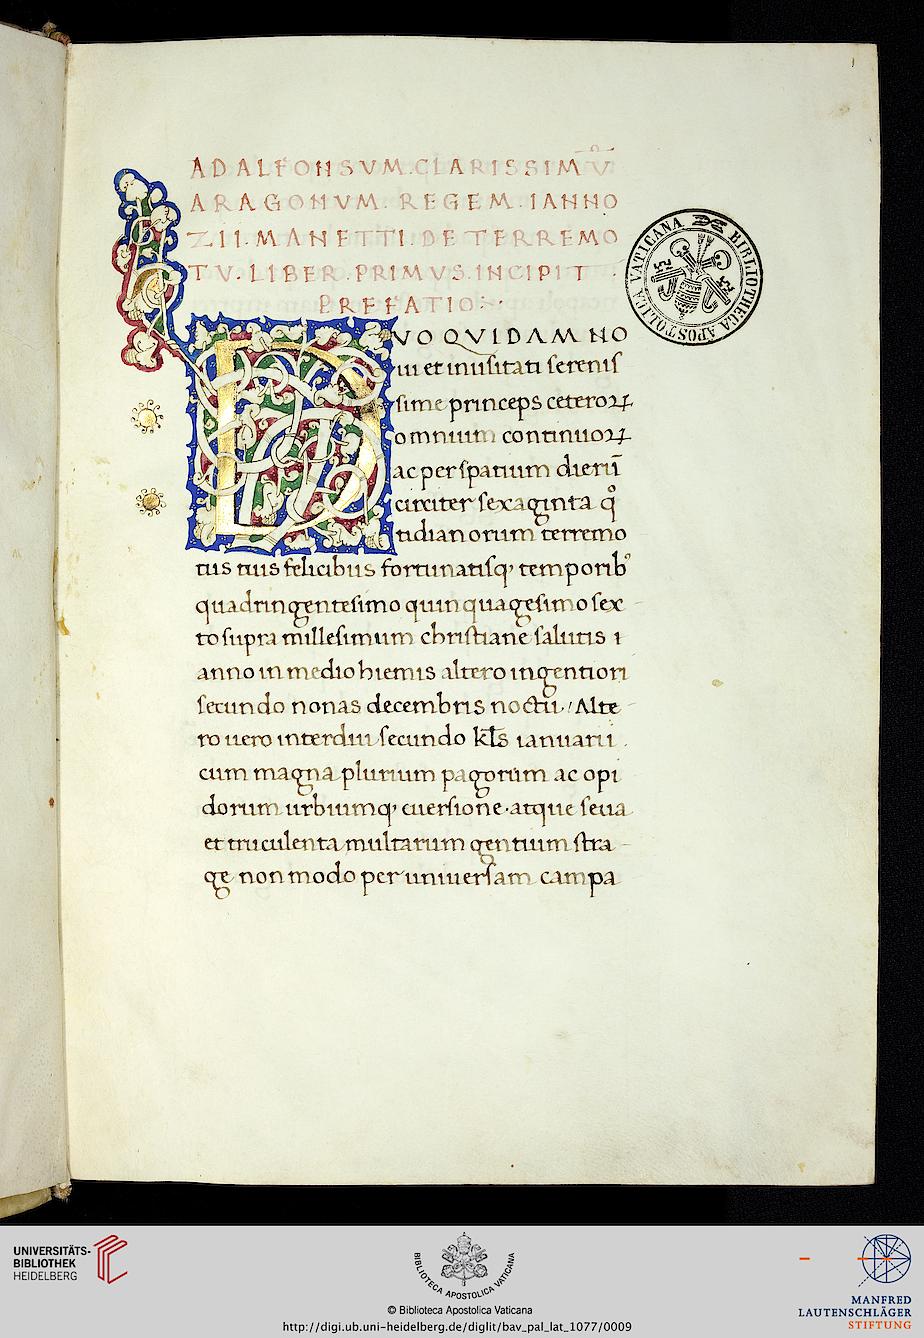 AD ALFONSVM.CLARISSIMŪ
ARAGONVM.REGEM.IANNO
ZII.MANETTI.DE TERREMO
TV.LIBER.PRIMVS.INCIPIT.
PREFATIO:·
DVO QVIDAM NO
ui et inusitati sereniſ
ſime princeps ceteroꝝ
omnium continuoꝝ
ac per ſpatium dierū
circiter ſexaginta qͦ
tidianorum terremo
tus tuis felicibus fortunatiſq; temporibꝰ
quadringentesimo quinquagesimo sex
to ſupra millesimum christiane salutis
anno in medio hiemis altero ingentiori
secundo nonas decembris noctu. Alte
ro uero interdiu secundo kl̄s ianuarii.
cum magna plurium pagorum ac opi
dorum urbiumq; euersione atque seua
et truculenta multarum gentium stra
ge non modo per uniuersam campa
BIBLIOTHECA APOSTOLICA VATICANA
UNIVERSITÄTS-
BIBLIOTHEK
HEIDELBERG
BIBLIOTECA APOSTOLICA VATICANA
© Biblioteca Apostolica Vaticana
http://digi.ub.uni-heidelberg.de/diglit/bav_pal_lat_1077/0009
MANFRED
LAUTENSCHLÄGER
STIFTUNG